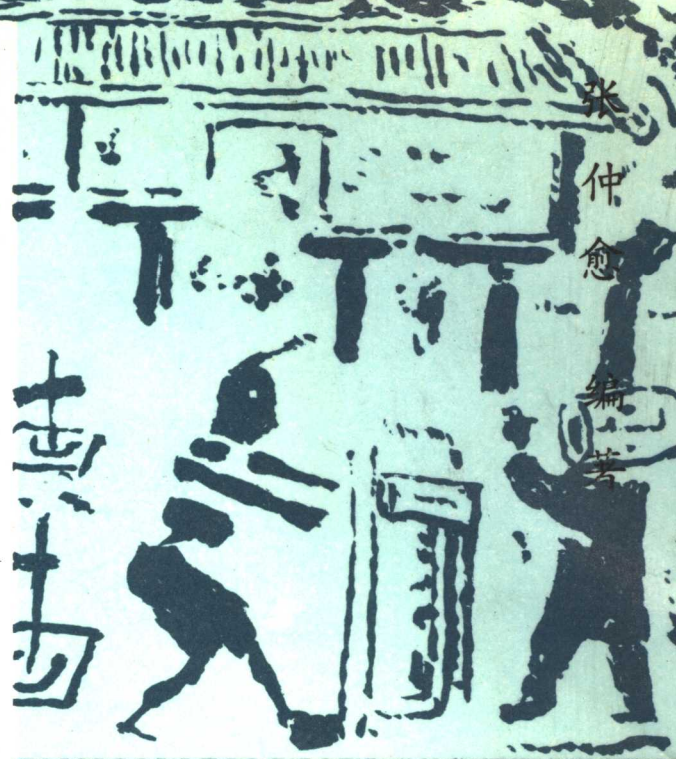 张仲愈 编著